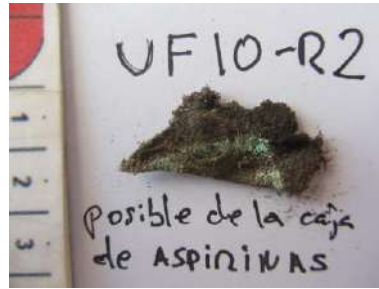 UF10-R2
1
2
3
posible de la caja
de ASPIRINAS